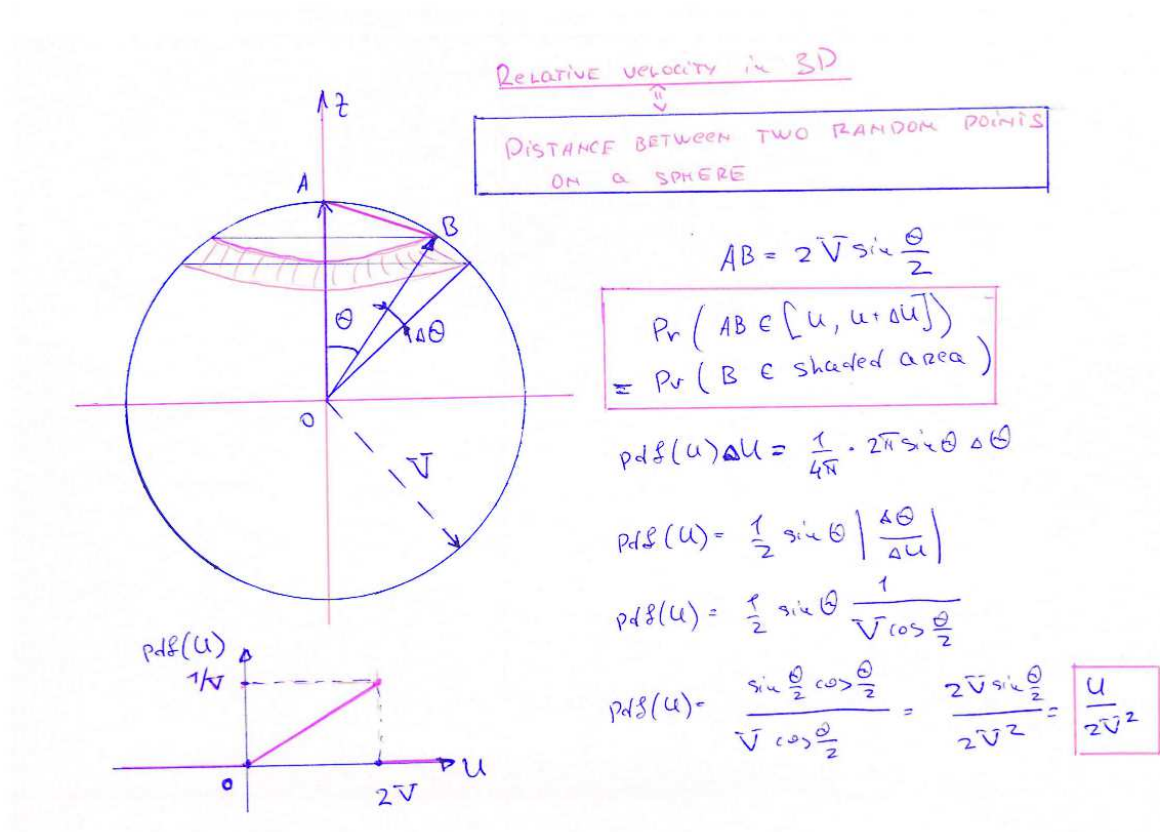 RELATIVE VELOCITY in 3D
DISTANCE BETWEEN TWO RANDOM POINTS
ON a SPHERE
z
A
B
θ
Δθ
O
V̄
AB = 2 V̄ sin θ/2
Pr ( AB ∈ [U, U+ΔU])
= Pr ( B ∈ shaded area )
pdf(U)ΔU = 1/4π · 2π sin θ Δθ
pdf(U) = 1/2 sin θ | Δθ/ΔU |
pdf(U) = 1/2 sin θ 1/(V̄ cos θ/2)
pdf(U) = (sin θ/2 cos θ/2)/(V̄ cos θ/2) = (2V̄ sin θ/2)/(2V̄²) = U/2V̄²
pdf(U)
1/V̄
0
2V̄
U